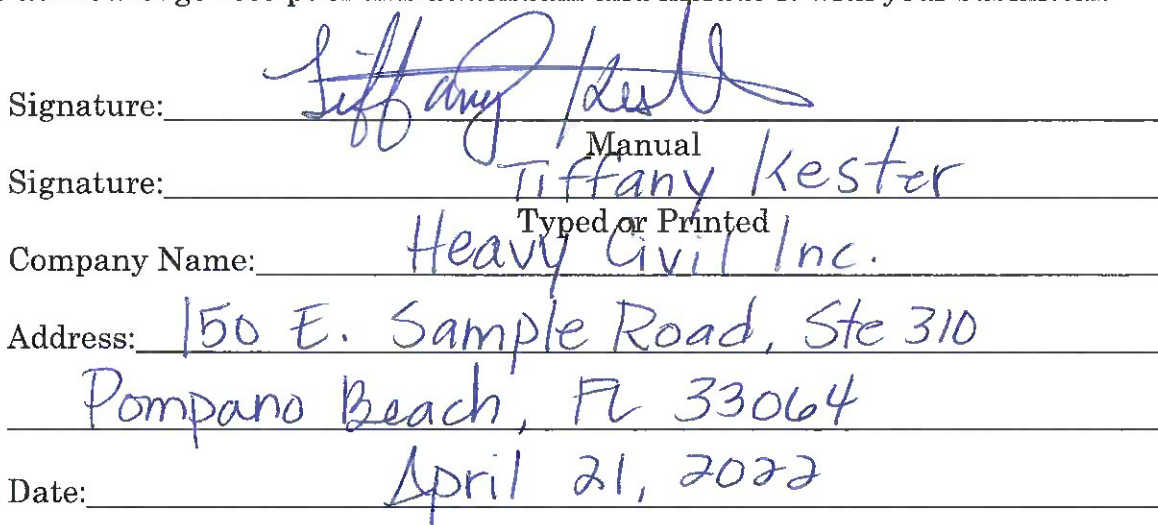 Signature: Tiffany Kest
Manual
Signature: Tiffany Kester
Typed or Printed
Company Name: Heavy Civil Inc.
Address: 150 E. Sample Road, Ste 310
Pompano Beach, FL 33064
Date: April 21, 2022